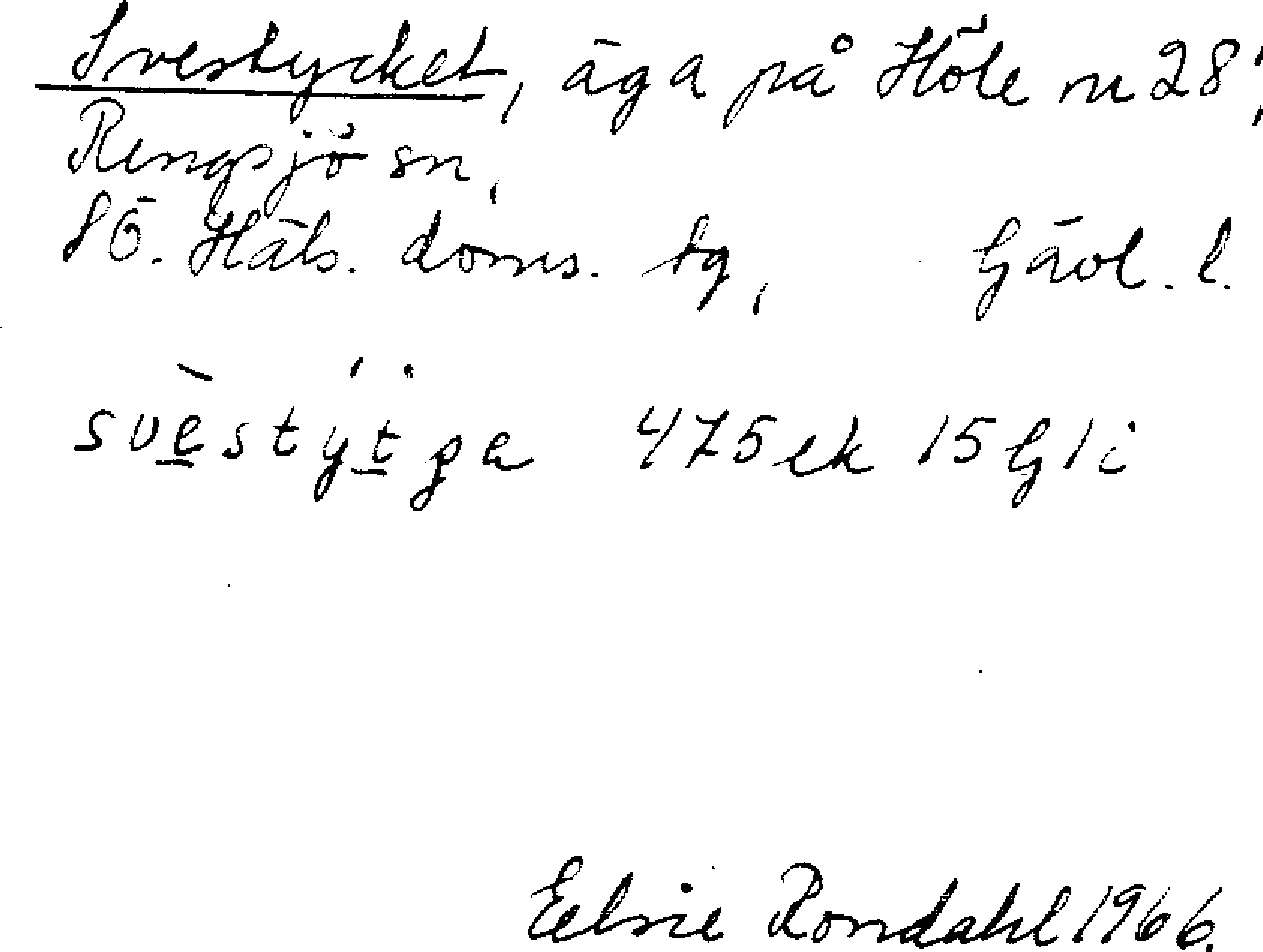 Svestycket, äga på Höle nr 28,
Rengsjö sn,
SÖ. Häls. doms. tg, Gävl. l.
svèstýtga 475 ek 15 G 1 i
Rondahl 1966.